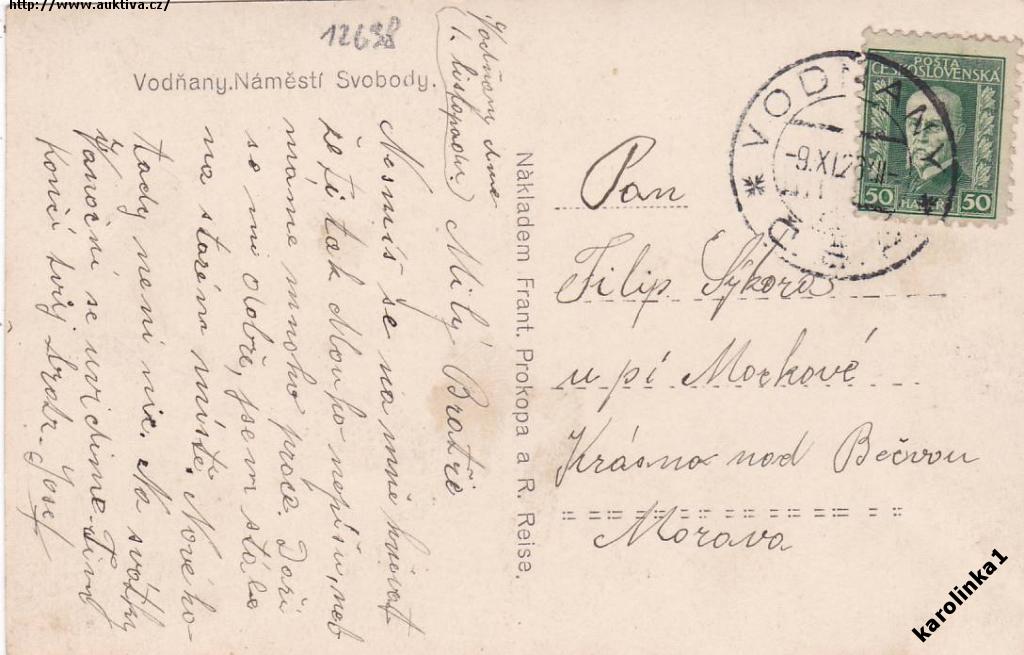 http://www.auktiva.cz/
12698
Vodňany. Náměstí Svobody.
Vodňany dne
1. listopadu.
Milý Bratře
Nesmíš se na mně hněvat
že Ti tak dlouho nepíšu, neb
máme mnoho práce. Daří
se mi dobře, jsem stále
na starém místě. Nového
tady není nic. Na svátky
Vánoční se uvidíme. Tím
končí svůj bratr Josef
Nàkladem Frant. Prokopa a R. Reise.
POŠTA
ČESKOSLOVENSKA
50 HALÉŘŮ 50
VODŇANY
-9.XI.26
Pan
Filip Sýkora
u pí Mockové
Krásno nad Bečvou
Morava
karolinka1